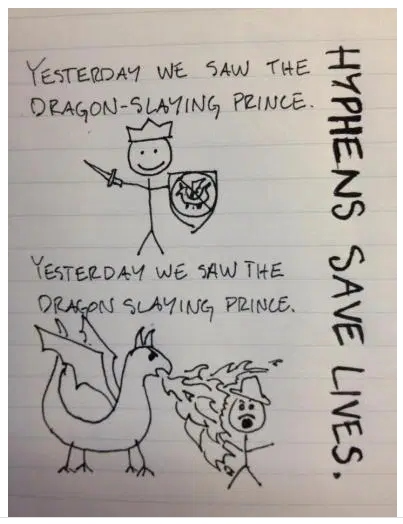 YESTERDAY WE SAW THE
DRAGON-SLAYING PRINCE.
YESTERDAY WE SAW THE
DRAGON SLAYING PRINCE.
HYPHENS SAVE LIVES.